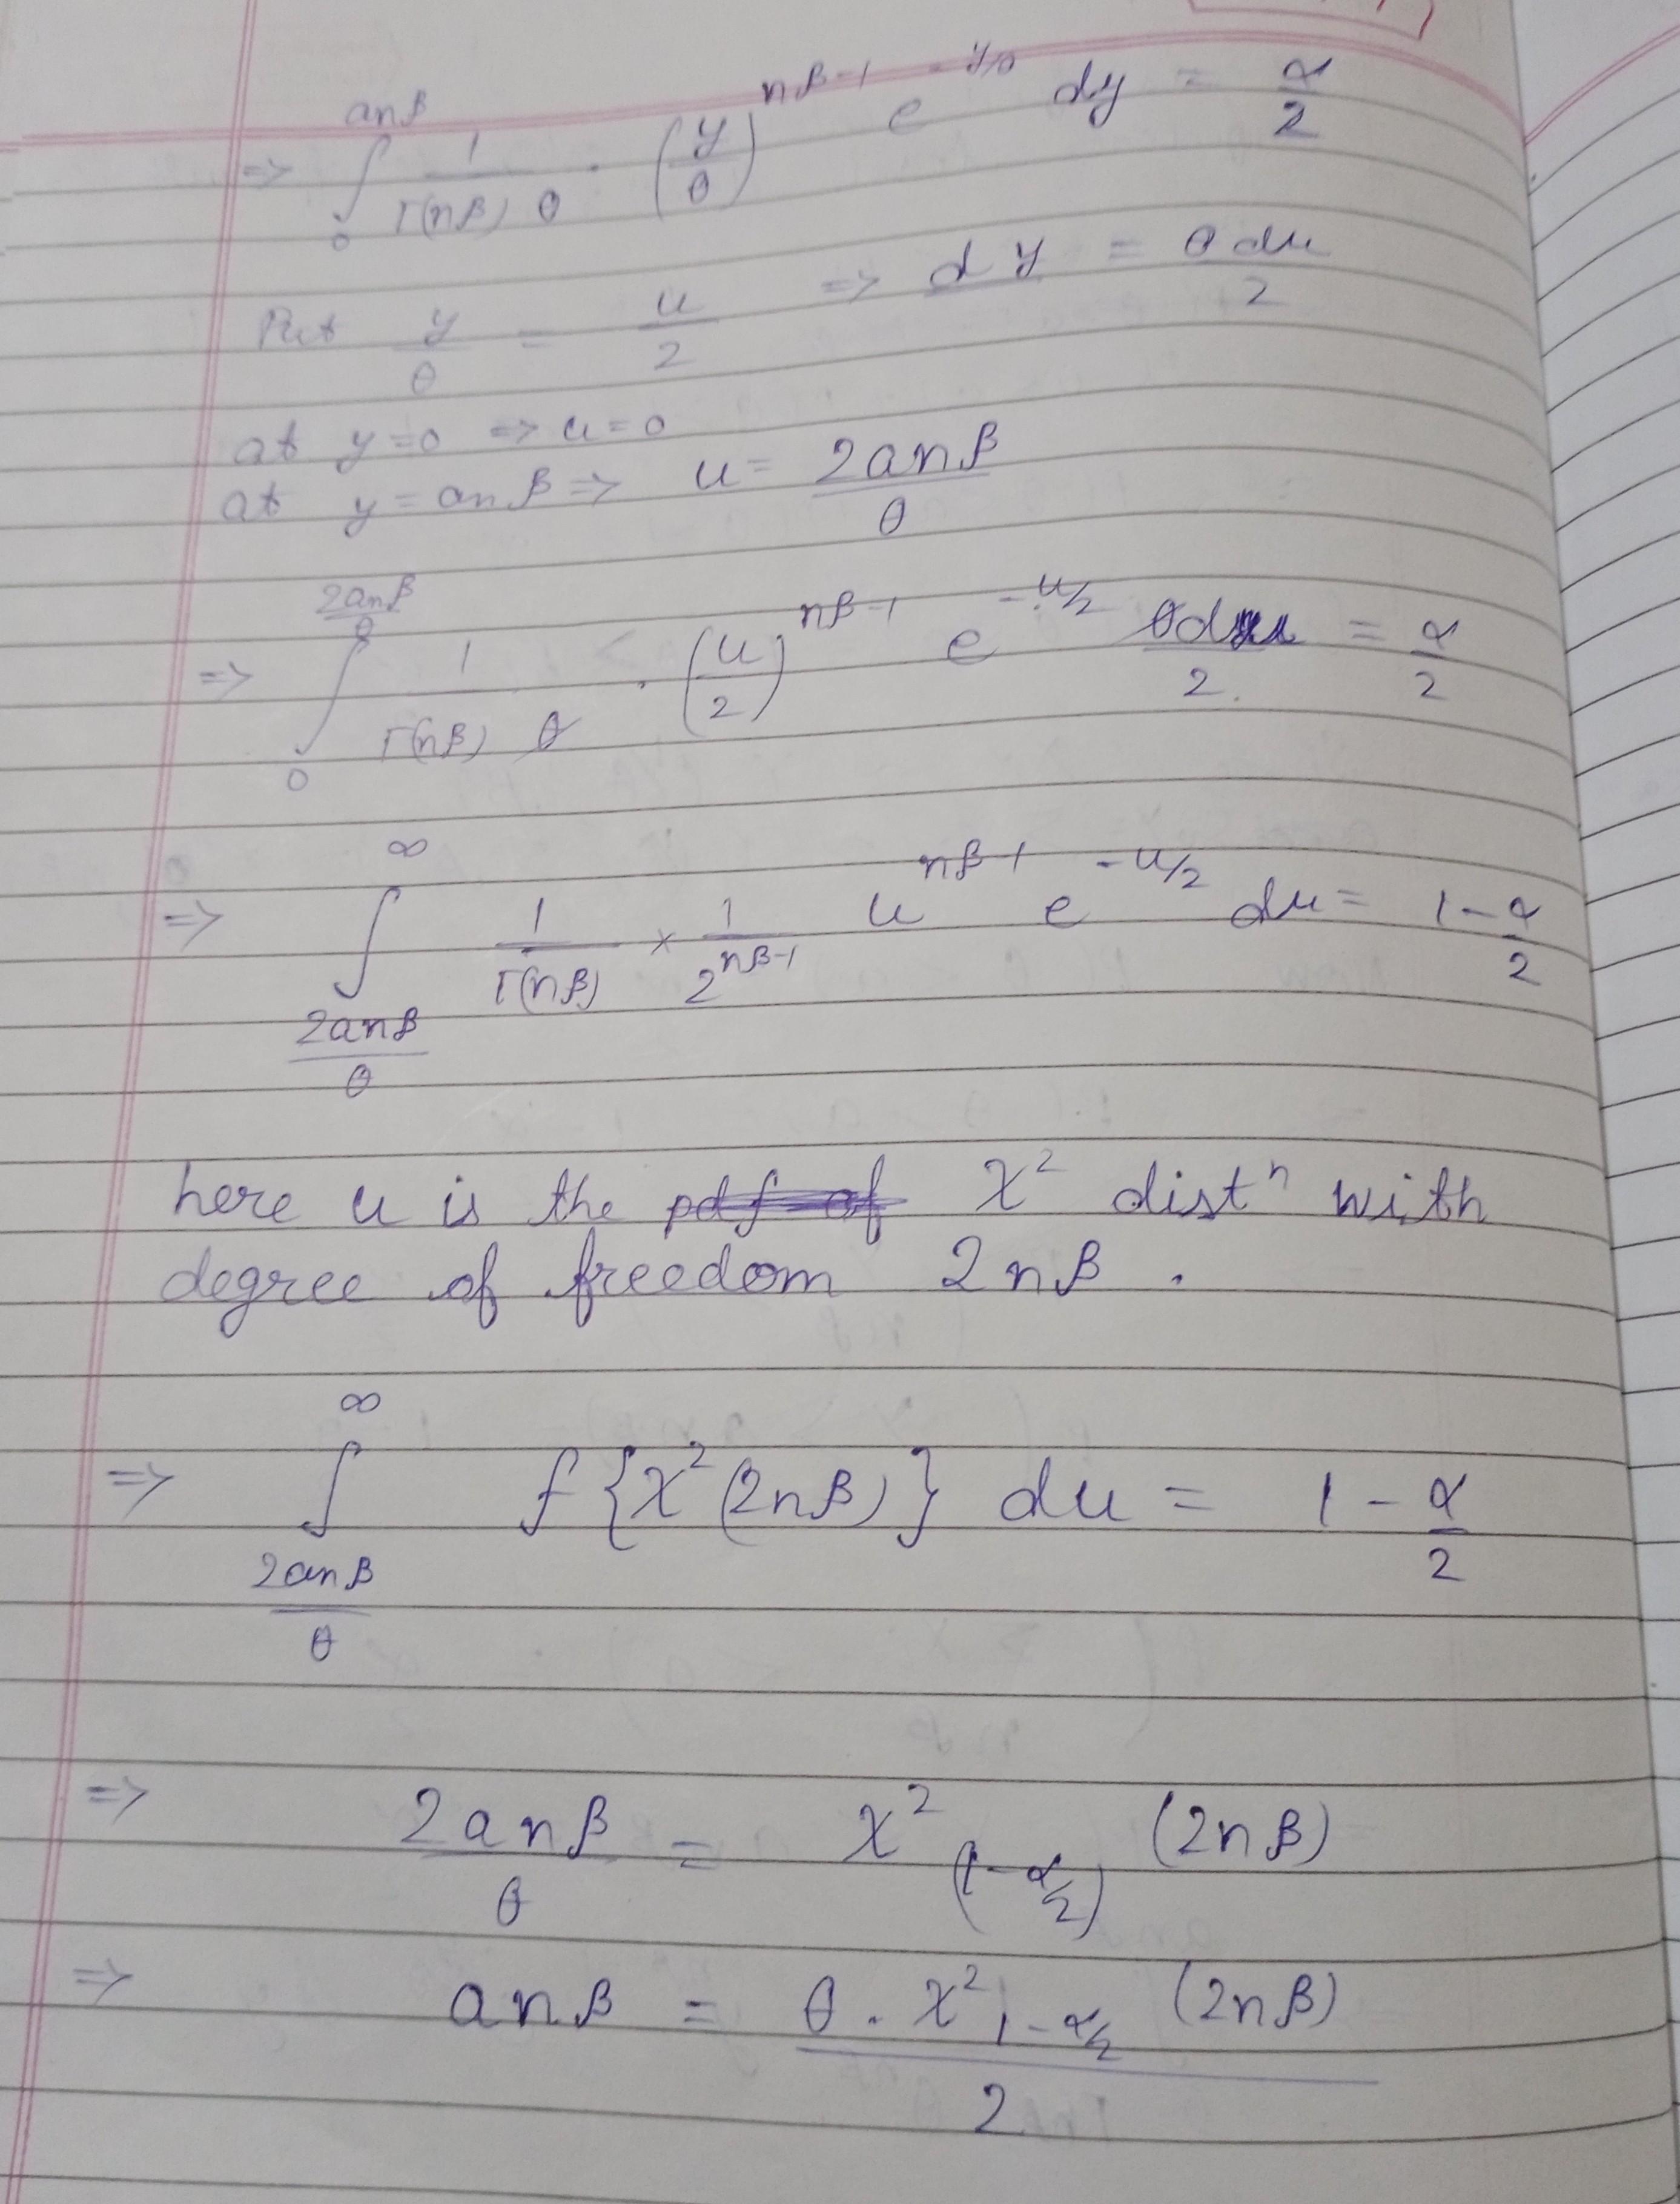 ⇒ ∫₀^{anβ} 1/(Γ(nβ) θ) · (y/θ)^{nβ-1} e^{-y/θ} dy = α/2
Put y/θ = u/2 ⇒ dy = θdu/2
at y=0 ⇒ u=0
at y=anβ ⇒ u= 2anβ/θ
⇒ ∫₀^{2anβ/θ} 1/(Γ(nβ) θ) · (u/2)^{nβ-1} e^{-u/2} θdu/2 = α/2
⇒ ∫_{2anβ/θ}^{∞} 1/Γ(nβ) × 1/2^{nβ-1} u^{nβ-1} e^{-u/2} du = 1-α/2
here u is the pdf of χ² distⁿ with
degree of freedom 2nβ.
⇒ ∫_{2anβ/θ}^{∞} f{χ²(2nβ)} du = 1-α/2
⇒ 2anβ/θ = χ²_{(1-α/2)} (2nβ)
⇒ anβ = θ.χ²_{1-α/2} (2nβ)/2